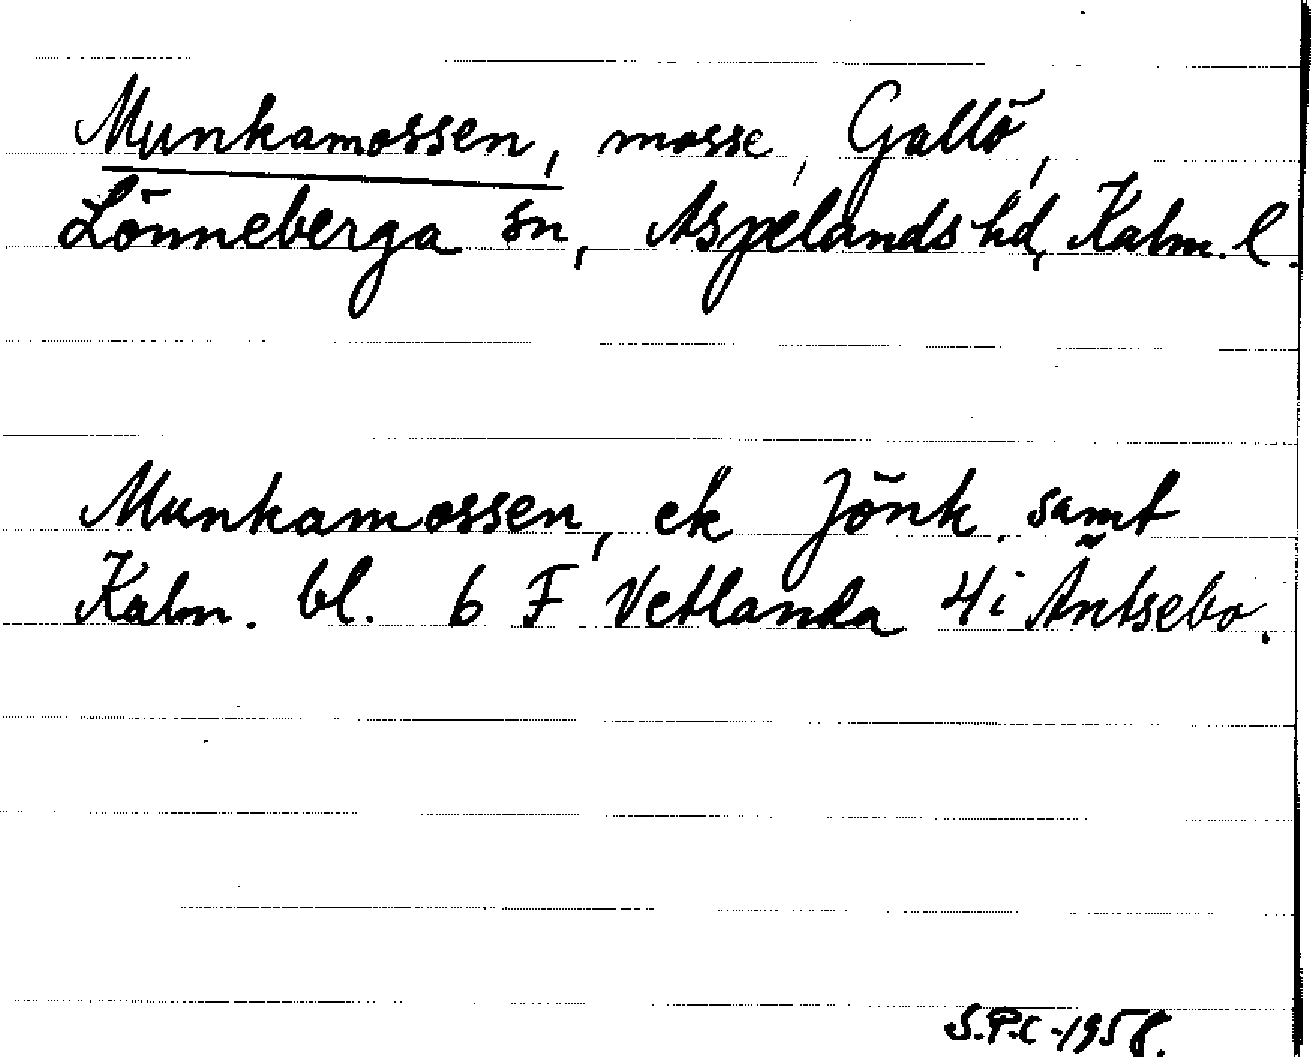 Munkamossen, mosse, Gallö,
Lönneberga sn, Aspelands hd, Kalm. l.
Munkamossen, ek Jönk. samt
Kalm. bl. 6 F Vetlanda 4i Äntsebo.
S.P.C -1958.